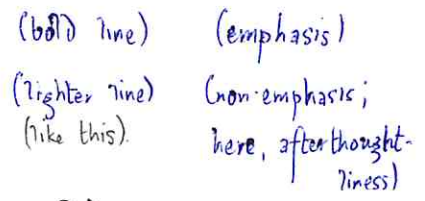 (bold line) (emphasis)
(lighter line) (non-emphasis;
(like this). here, afterthought-
liness)